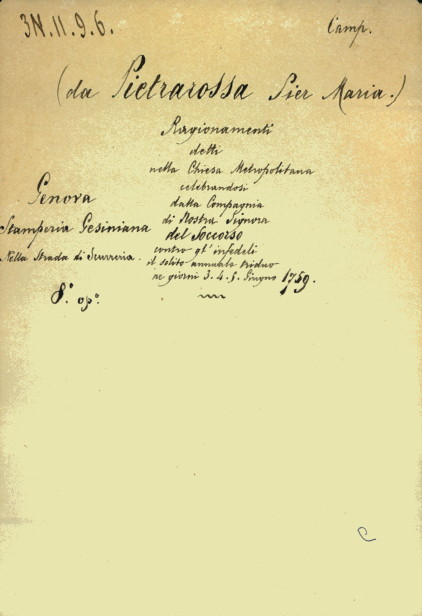 3N.11.9.6.
Camp.
(da Pietrarossa Pier Maria.)
Ragionamenti
detti
nella Chiesa Metropolitana
celebrandosi
dalla Compagnia
di Nostra Signora
del Soccorso
contro gl' infedeli
il solito annuale triduo
ne giorni 3. 4. 5. Giugno 1759.
Genova
Stamperia Gesiniana
Nella Strada di Scurreria.
8.° op.°
C